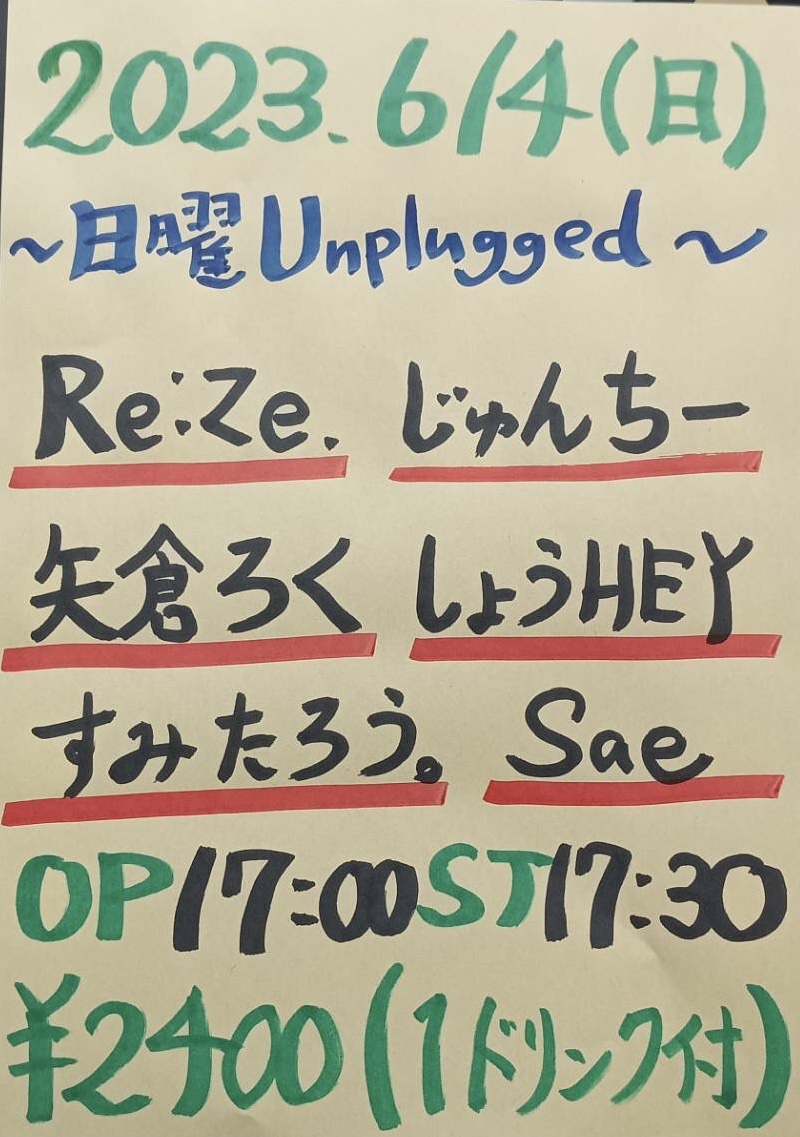 2023.6/4(日)
~日曜Unplugged~
Re:Ze. じゅんちー
矢倉ろく しょうHEY
すみたろう。 Sae
OP17:00 ST17:30
¥2400(1ドリンク付)